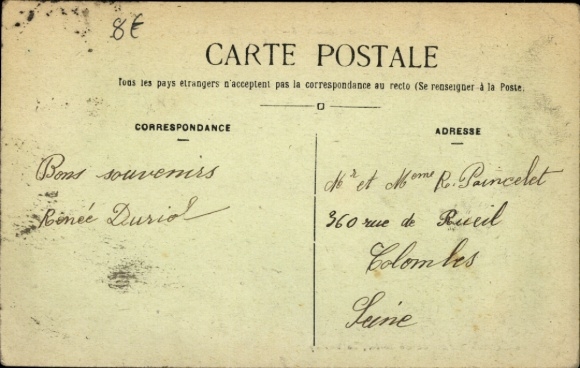 8€
CARTE POSTALE
Tous les pays étrangers n'acceptent pas la correspondance au recto (Se renseigner à la Poste.
CORRESPONDANCE
Bons souvenirs
Renée Duriol
ADRESSE
Mr et Meme R. Poincelet
360 rue de Rueil
Colombes
Seine